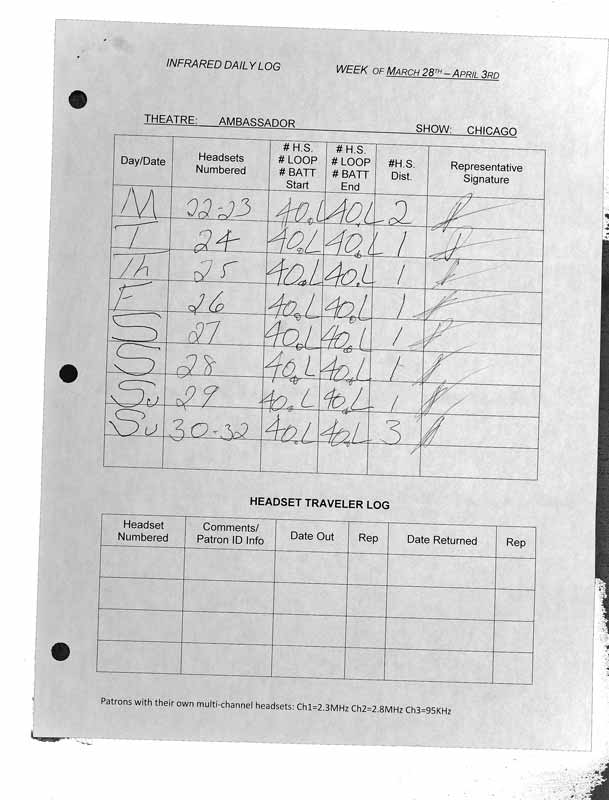 INFRARED DAILY LOG WEEK OF MARCH 28TH – APRIL 3RD
THEATRE: AMBASSADOR SHOW: CHICAGO
Day/Date
Headsets
Numbered
# H.S.
# LOOP
# BATT
Start
# H.S.
# LOOP
# BATT
End
#H.S.
Dist.
Representative
Signature
M 22-23 40.L 40.L 2
T 24 40.L 40.L 1
Th 25 40.L 40.L 1
F 26 40.L 40.L 1
S 27 40.L 40.L 1
S 28 40.L 40.L 1
Su 29 40.L 40.L 1
Su 30-32 40.L 40.L 3
HEADSET TRAVELER LOG
Headset
Numbered
Comments/
Patron ID Info
Date Out
Rep
Date Returned
Rep
Patrons with their own multi-channel headsets: Ch1=2.3MHz Ch2=2.8MHz Ch3=95KHz